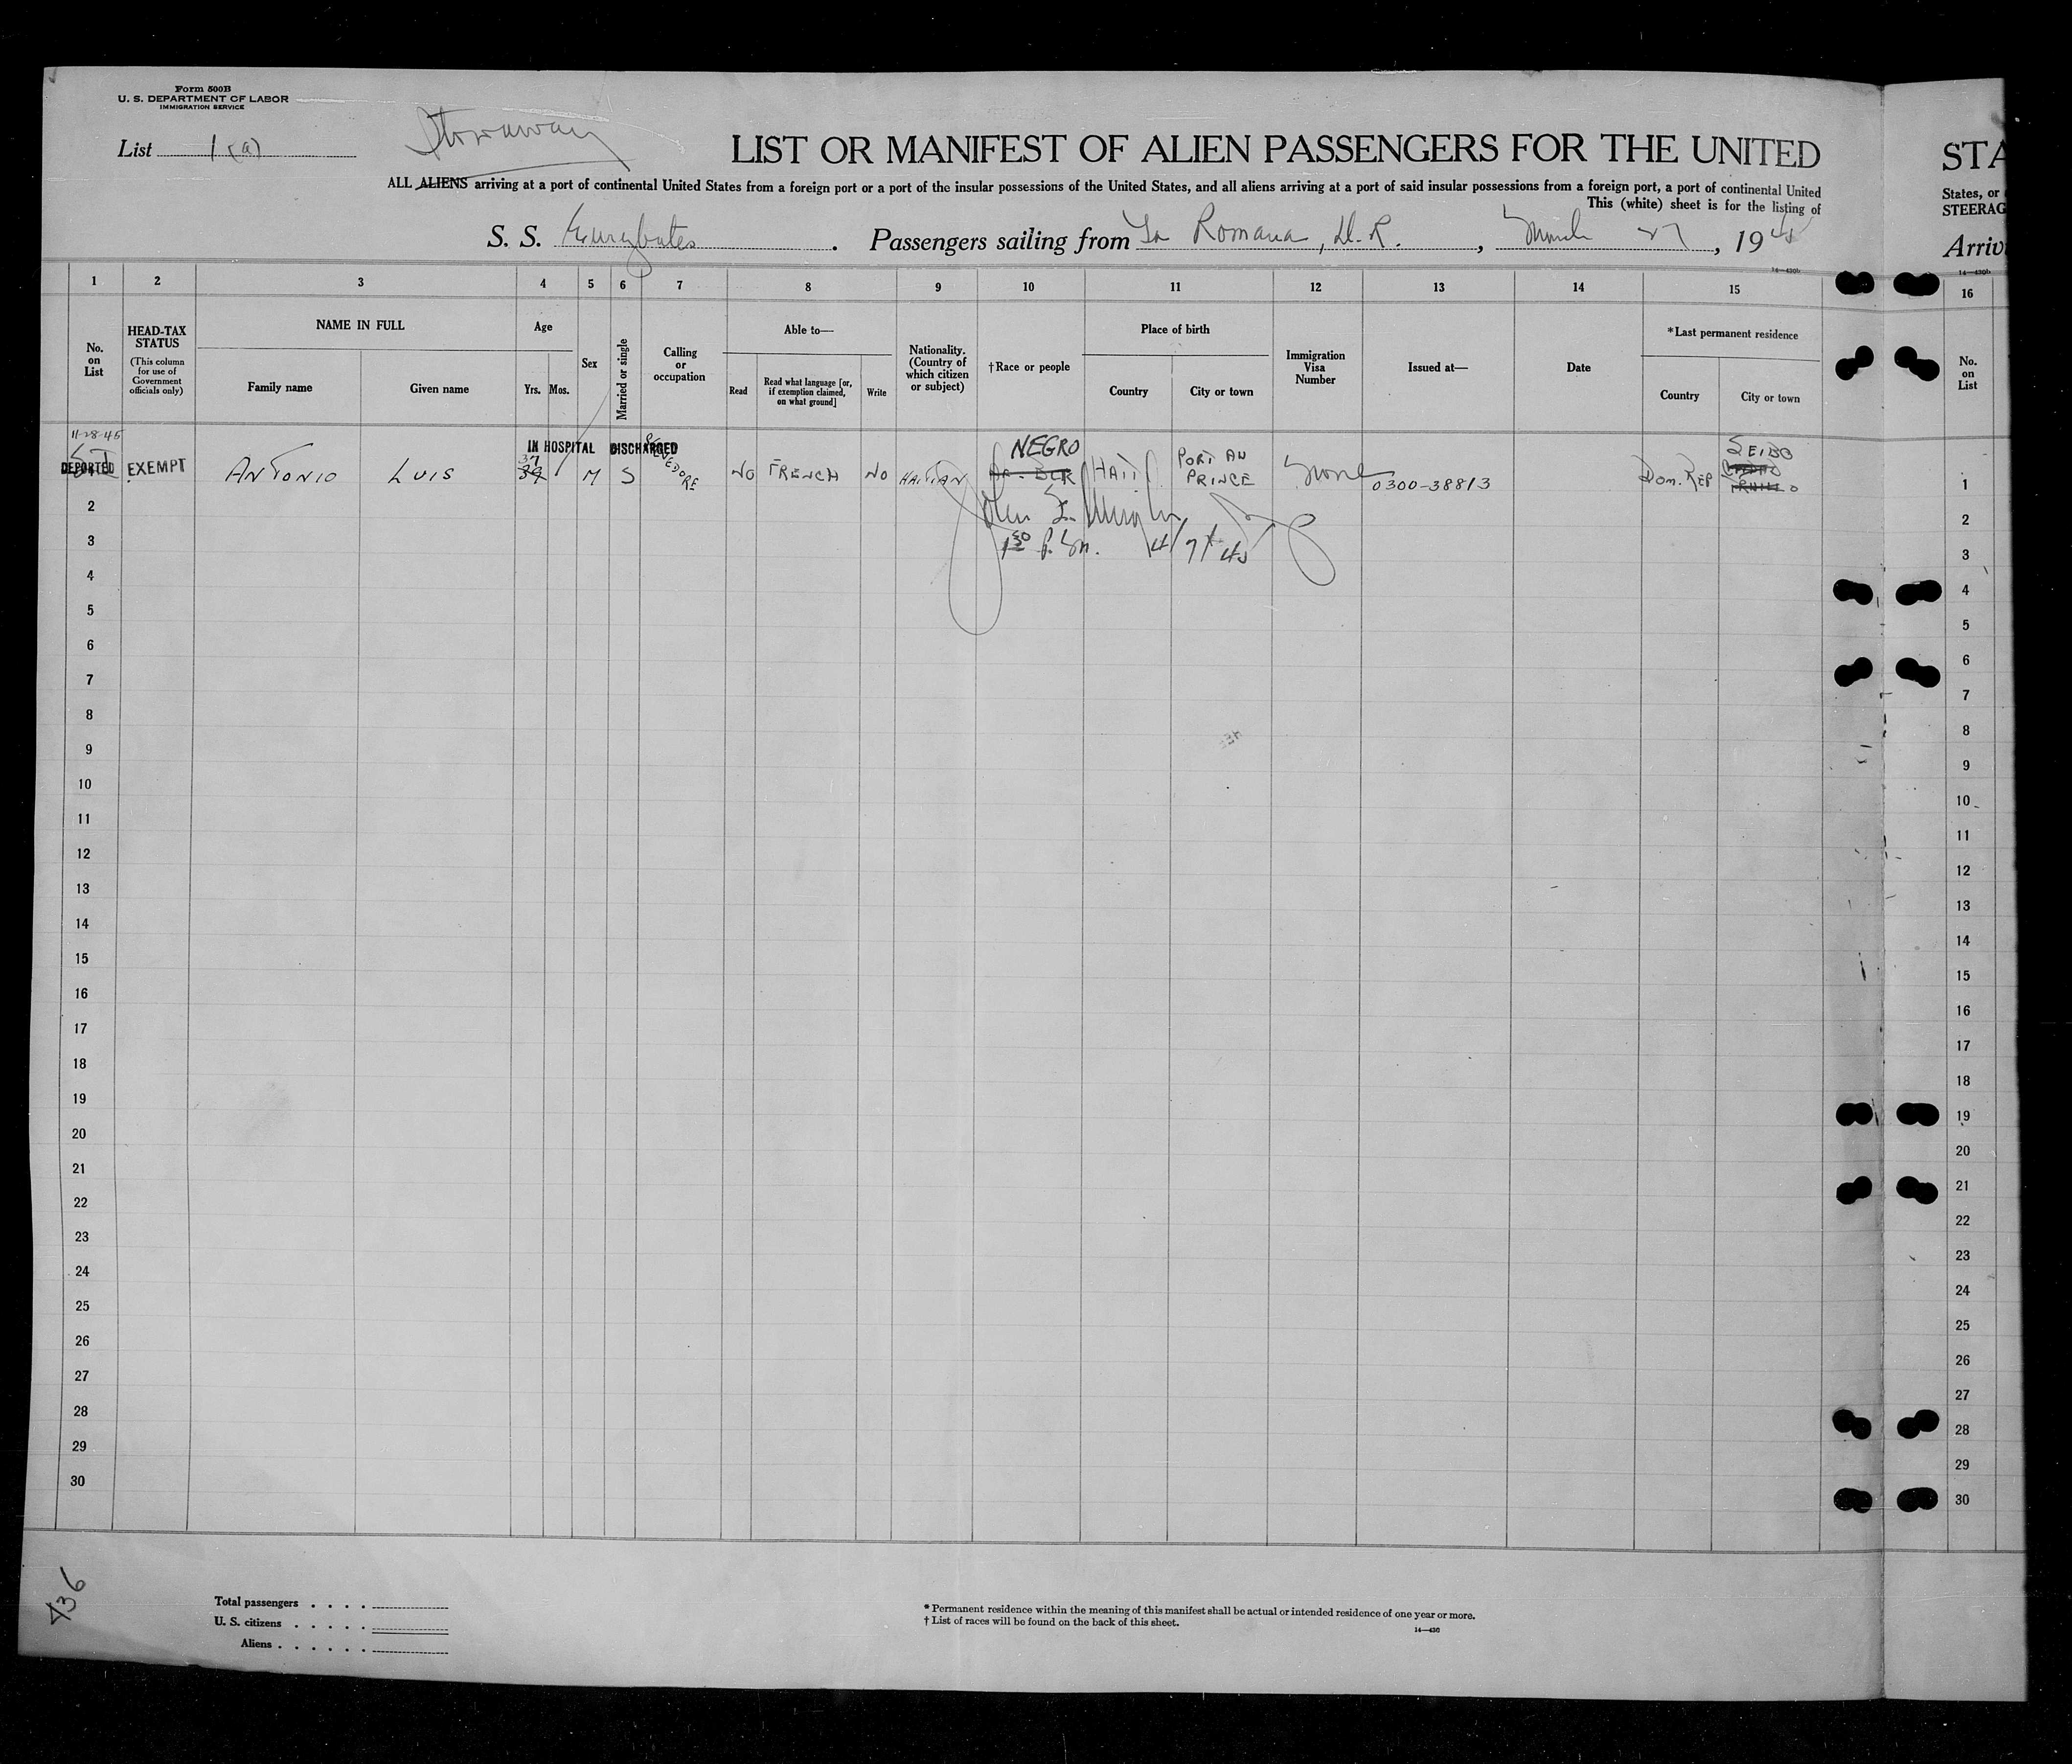 Form 500B
U. S. DEPARTMENT OF LABOR
IMMIGRATION SERVICE
List 1 (a)
Stowaway
LIST OR MANIFEST OF ALIEN PASSENGERS FOR THE UNITED
STA
ALL ALIENS arriving at a port of continental United States from a foreign port or a port of the insular possessions of the United States, and all aliens arriving at a port of said insular possessions from a foreign port, a port of continental United
States, or
This (white) sheet is for the listing of
STEERAG
S. S. Eurybates . Passengers sailing from La Romana, D.R. , March 27, 1945
Arriv
14—430b
14—430b
1 2 3 4 5 6 7 8 9 10 11 12 13 14 15 16
No. on List
HEAD-TAX STATUS
(This column for use of Government officials only)
NAME IN FULL
Family name
Given name
Age
Yrs.
Mos.
Sex
Married or single
Calling or occupation
Able to—
Read
Read what language [or, if exemption claimed, on what ground]
Write
Nationality. (Country of which citizen or subject)
†Race or people
Place of birth
Country
City or town
Immigration Visa Number
Issued at—
Date
*Last permanent residence
Country
City or town
No. on List
11-28-45
IN HOSPITAL DISCHARGED
NEGRO
SEIBO
DEPORTED EXEMPT ANTONIO LUIS 37 39 M S STEVEDORE NO FRENCH NO HAITIAN HAITI PORT AU PRINCE None 0300-38813 Dom. REP
1
2
1 30 P.m. 4/7/45
2
3
3
4
4
5
5
6
6
7
7
8
8
9
9
10
10
11
11
12
12
13
13
14
14
15
15
16
16
17
17
18
18
19
19
20
20
21
21
22
22
23
23
24
24
25
25
26
26
27
27
28
28
29
29
30
30
436
Total passengers . . . .
U. S. citizens . . . . .
Aliens . . . . . .
* Permanent residence within the meaning of this manifest shall be actual or intended residence of one year or more.
† List of races will be found on the back of this sheet.
14—430